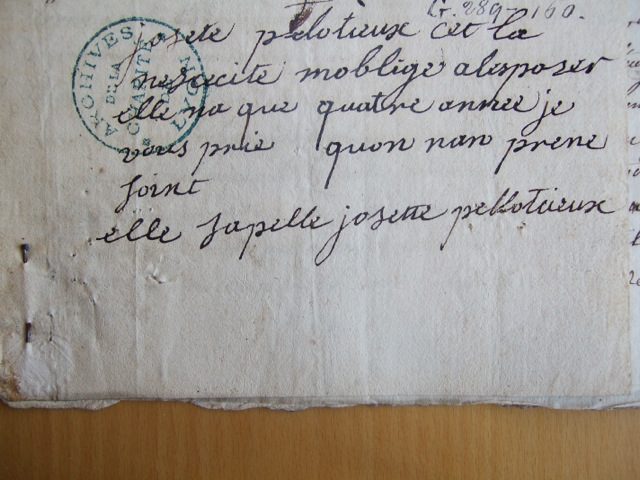 G. 289-160.
josete pelotieux cet la
nescecite moblige alesposer
elle na que quatre annee je
vous prie quon nan prene
soint
elle sapelle josette pellotieux
ARCHIVES
DE LA
CHARITÉ
LYON